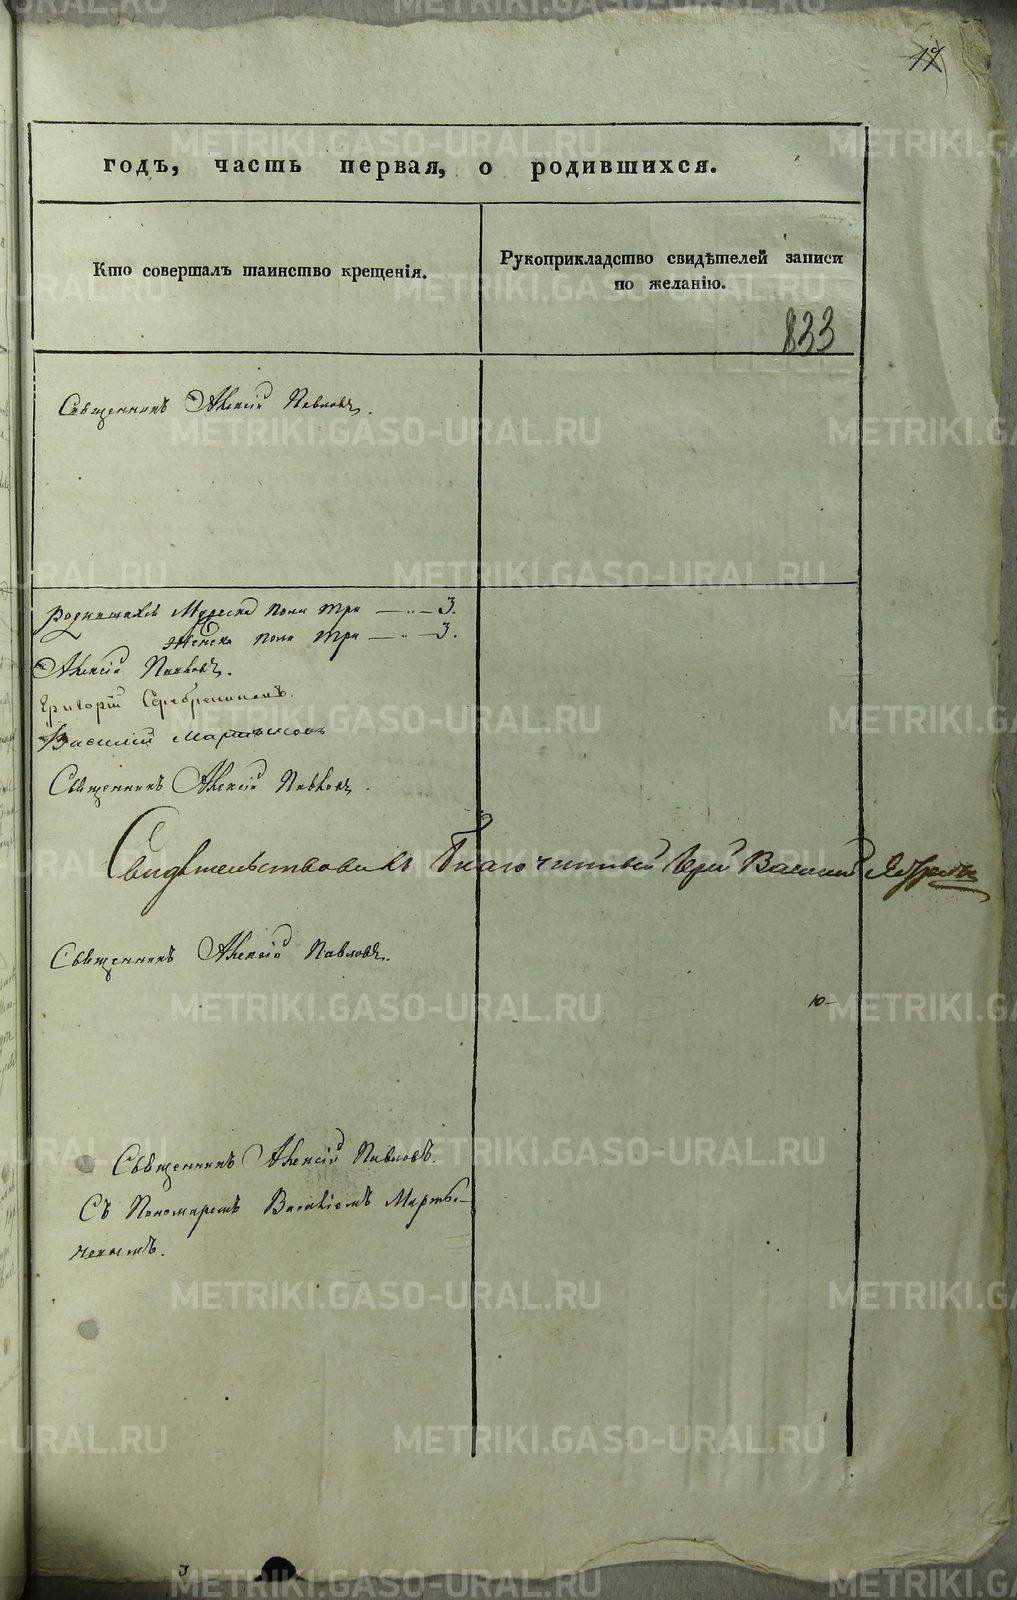 METRIKI.GASO-URAL.RU
годъ, часть первая, о родившихся.
Кто совершалъ таинство крещенія.
Рукоприкладство свидѣтелей записи
по желанію.
833
Священникъ Алексій Павловъ.
родившихся Мужеска пола три — 3.
Женска пола три — 3.
Алексій Павловъ.
Григорій Серебрениковъ.
Василій
Священникъ Алексій Павловъ.
Свидѣтельствовалъ Благочинный Іерей Василій
Священникъ Алексій Павловъ.
ю-
Священникъ Алексій Павловъ.
Съ Пономаремъ Василіемъ